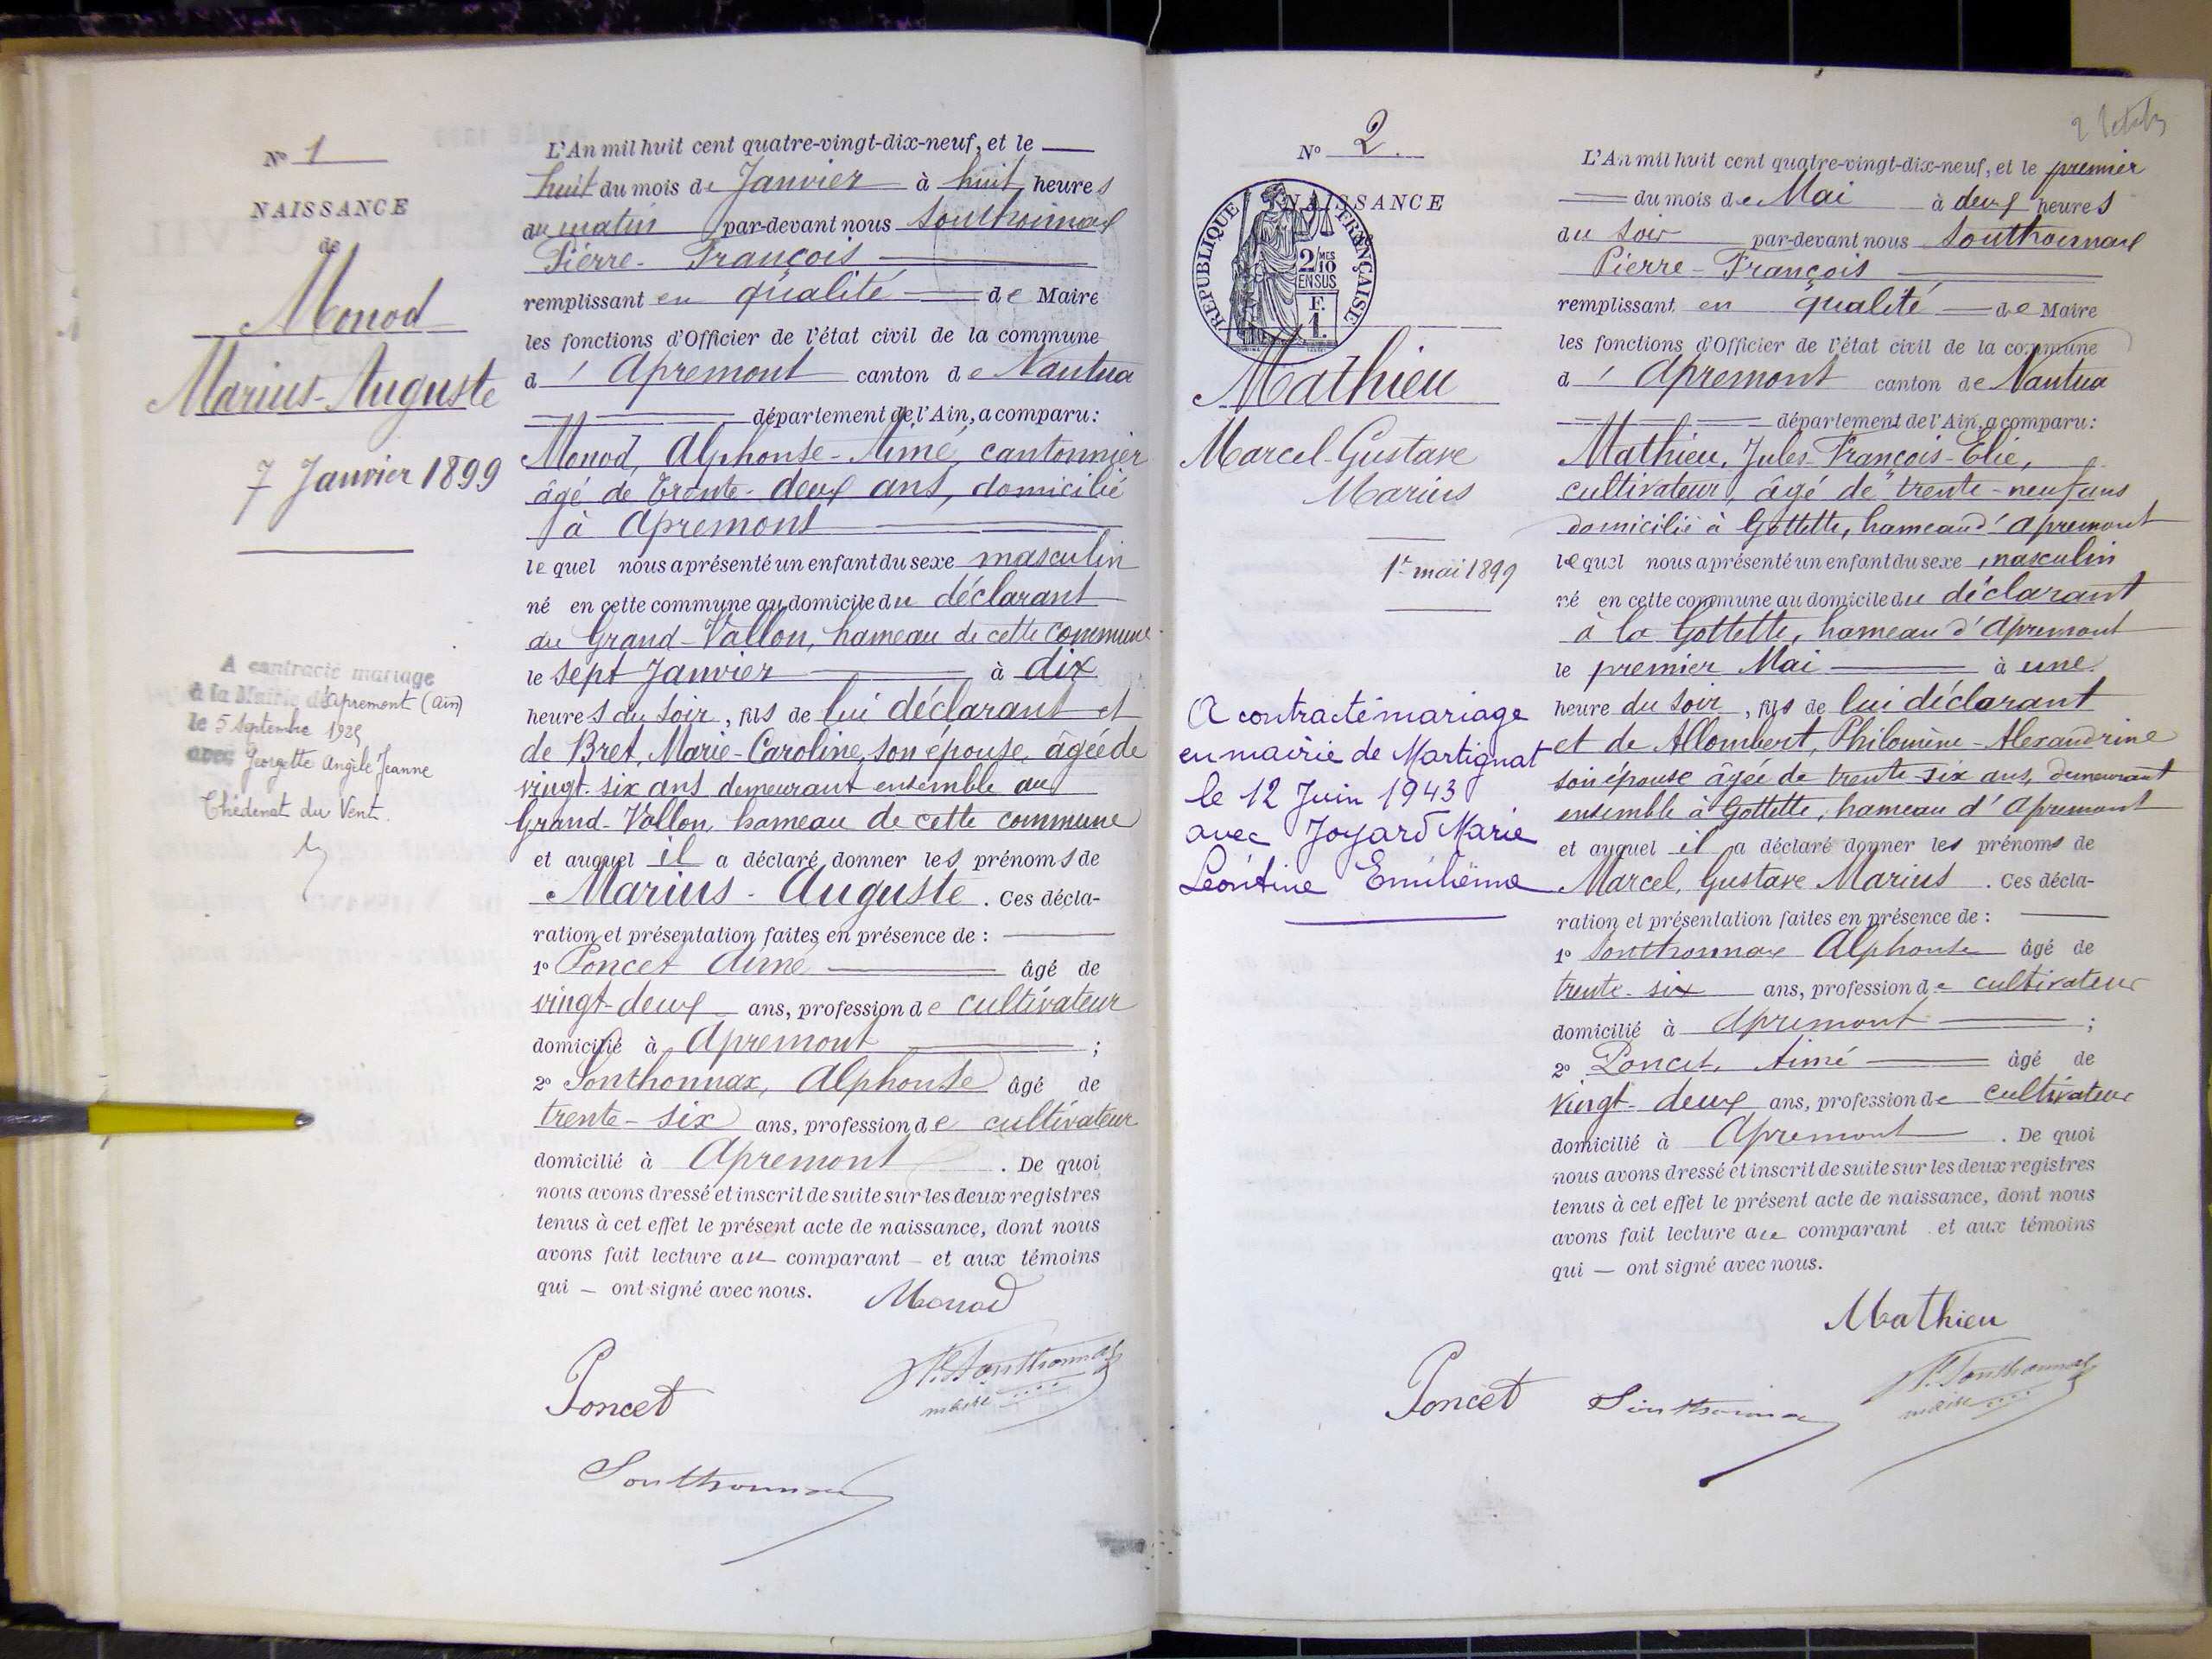 N° 1
NAISSANCE
de
Monod
Marius-Auguste
7 Janvier 1899
A contracté mariage
à la Mairie d'Apremont (Ain)
le 5 Septembre 1925
avec Georgette Angèle Jeanne
Thédenat du Vent.
L'An mil huit cent quatre-vingt-dix-neuf, et le
huit du mois de Janvier à huit heures
du matin par-devant nous Sonthonnax
Pierre-François
remplissant en qualité de Maire
les fonctions d'Officier de l'état civil de la commune
d'Apremont canton de Nantua
département de l'Ain, a comparu :
Monod, Alphonse-Aimé, cantonnier
âgé de trente-deux ans, domicilié
à Apremont
lequel nous a présenté un enfant du sexe masculin
né en cette commune au domicile du déclarant
au Grand-Vallon, hameau de cette commune
le sept Janvier à dix
heures du soir, fils de lui déclarant et
de Bret, Marie-Caroline, son épouse, âgée de
vingt-six ans demeurant ensemble au
Grand-Vallon, hameau de cette commune
et auquel il a déclaré donner les prénoms de
Marius-Auguste. Ces décla-
ration et présentation faites en présence de :
1° Poncet Aimé âgé de
vingt-deux ans, profession de cultivateur
domicilié à Apremont ;
2° Sonthonnax, Alphonse âgé de
trente-six ans, profession de cultivateur
domicilié à Apremont. De quoi
nous avons dressé et inscrit de suite sur les deux registres
tenus à cet effet le présent acte de naissance, dont nous
avons fait lecture au comparant et aux témoins
qui ont signé avec nous.
Monod
P. Sonthonnax
maire
Poncet
Sonthonnax
N° 2.
NAISSANCE
RÉPUBLIQUE FRANÇAISE
2/10
MES
EN SUS
F.
1.
Mathieu
Marcel-Gustave
Marius
1er mai 1899
A contracté mariage
en mairie de Martignat
le 12 Juin 1943
avec Joyard Marie
Léontine Emilienne
L'An mil huit cent quatre-vingt-dix-neuf, et le premier
du mois de Mai à deux heures
du soir par-devant nous Sonthonnax
Pierre-François
remplissant en qualité de Maire
les fonctions d'Officier de l'état civil de la commune
d'Apremont canton de Nantua
département de l'Ain, a comparu :
Mathieu, Jules-François-Elie,
cultivateur, âgé de trente-neuf ans
domicilié à Gottette, hameau d'Apremont
lequel nous a présenté un enfant du sexe masculin
né en cette commune au domicile du déclarant
à la Gottette, hameau d'Apremont
le premier Mai à une
heure du soir, fils de lui déclarant
et de Allombert, Philomène-Alexandrine
son épouse âgée de trente-six ans, demeurant
ensemble à Gottette, hameau d'Apremont
et auquel il a déclaré donner les prénoms de
Marcel, Gustave Marius. Ces décla-
ration et présentation faites en présence de :
1° Sonthonnax Alphonse âgé de
trente-six ans, profession de cultivateur
domicilié à Apremont ;
2° Poncet, Aimé âgé de
vingt-deux ans, profession de cultivateur
domicilié à Apremont. De quoi
nous avons dressé et inscrit de suite sur les deux registres
tenus à cet effet le présent acte de naissance, dont nous
avons fait lecture au comparant et aux témoins
qui — ont signé avec nous.
Mathieu
Poncet Sonthonnax P. Sonthonnax
maire